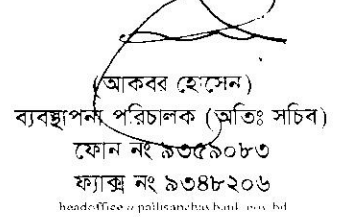 (আকবর হোসেন)
ব্যবস্থাপনা পরিচালক (অতিঃ সচিব)
ফোন নং ৯৩৫৯০৮৩
ফ্যাক্স নং ৯৩৪৮২০৬
headoffice@pallisanchaybank.gov.bd